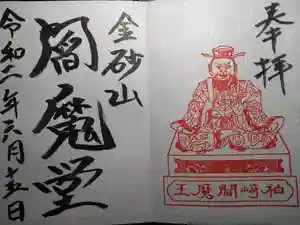 奉拝
金砂山
閻魔堂
令和二年六月十五日
王魔閻崎柏